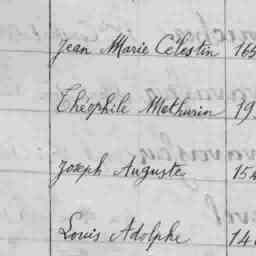 Jean Marie Célestin
Théophile Mathurin 19
Joseph Auguste
Louis Adolphe